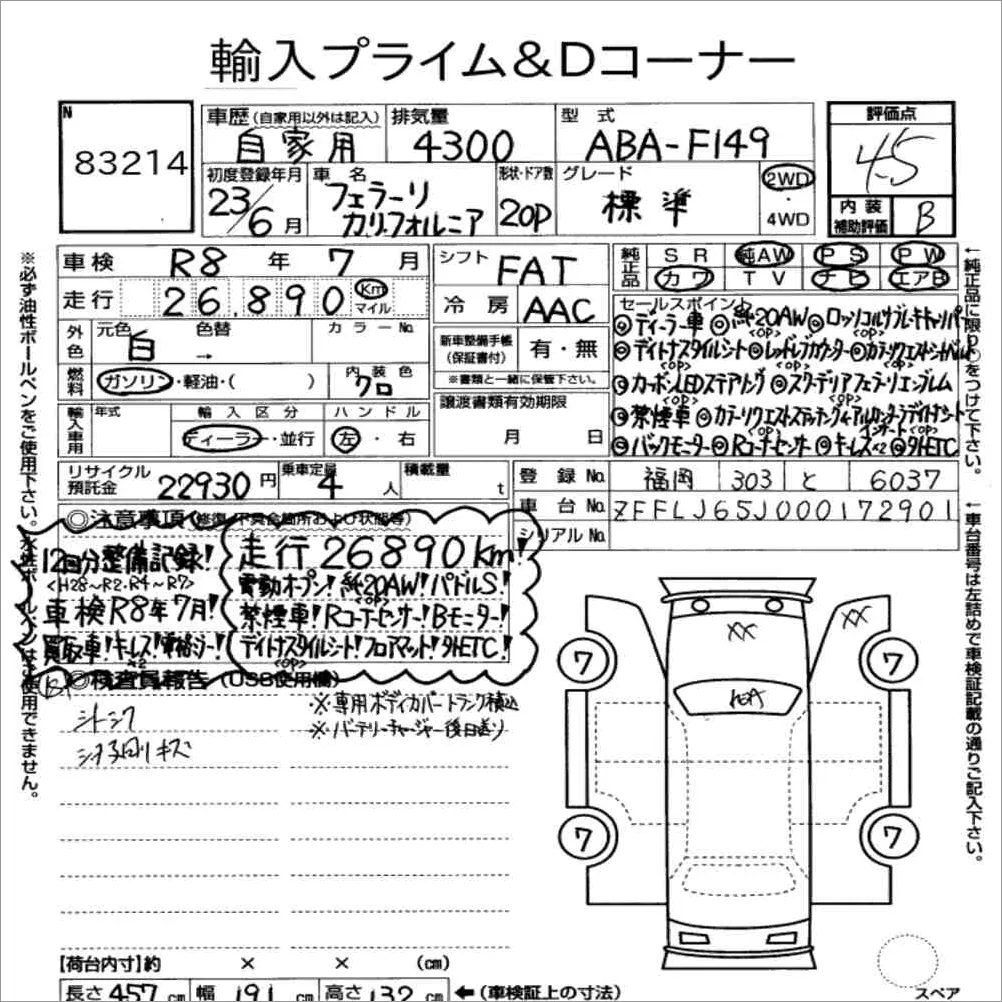 輸入プライム&Dコーナー
N
83214
車歴(自家用以外は記入)
自家用
排気量
4300
型式
ABA-F149
評価点
4.5
内装
補助評価
B
初度登録年月
23/6月
車名
フェラーリ
カリフォルニア
形状・ドア数
2OP
グレード
標準
2WD
・
4WD
車検 R8年7月
走行 26.890 Km
マイル
シフト
FAT
冷房 AAC
純正品
SR 純AW PS PW
カワ TV ナビ エアB
外色
元色
白
色替
→
カラーNo.
燃料
ガソリン・軽油・( )
内装色
クロ
新車整備手帳
(保証書付)
有・無
※書類と一緒に保管下さい。
輸入車用
年式
輸入区分
ディーラー・並行
ハンドル
左・右
譲渡書類有効期限
月 日
セールスポイント
◎ディーラー車 ◎純20AW ◎ロッソコルサブレーキキャリパー
<OP>
◎デイトナスタイルシート ◎レッドレブカウンター
<OP>
◎カーボンLEDステアリング ◎スクーデリアフェラーリエンブレム
<OP>
◎禁煙車
◎バックモニター ◎Rコーナーセンサー ◎キーレス×2 ◎外ETC
リサイクル
預託金
22930円
乗車定員
4人
積載量
t
登録No. 福岡 303 と 6037
車台No. ZFFLJ65J000172901
シリアルNo.
◎注意事項(修復・不具合箇所および状態等)
12回分整備記録!
<H28~R2・R4~R7>
車検R8年7月!
買取車!キーレス!
×2
走行26890Km!
電動オープン!純20AW!パドルS!
<OP>
禁煙車!Rコーナーセンサー!Bモニター!
デイトナスタイルシート!フロアマット!外ETC!
<OP>
◎検査員報告(USS使用欄)
シートシワ
※専用ボディカバートランク積込
※バッテリーチャージャー後日送り
XX
XX
7
7
7
7
【荷台内寸】約 × × (cm)
長さ457cm 幅191cm 高さ132cm ←(車検証上の寸法)
スペア
※必ず油性ボールペンをご使用下さい。水性ボールペンは使用できません。
←純正品に限り○をつけて下さい。
←車台番号は左詰めで車検証記載の通りご記入下さい。